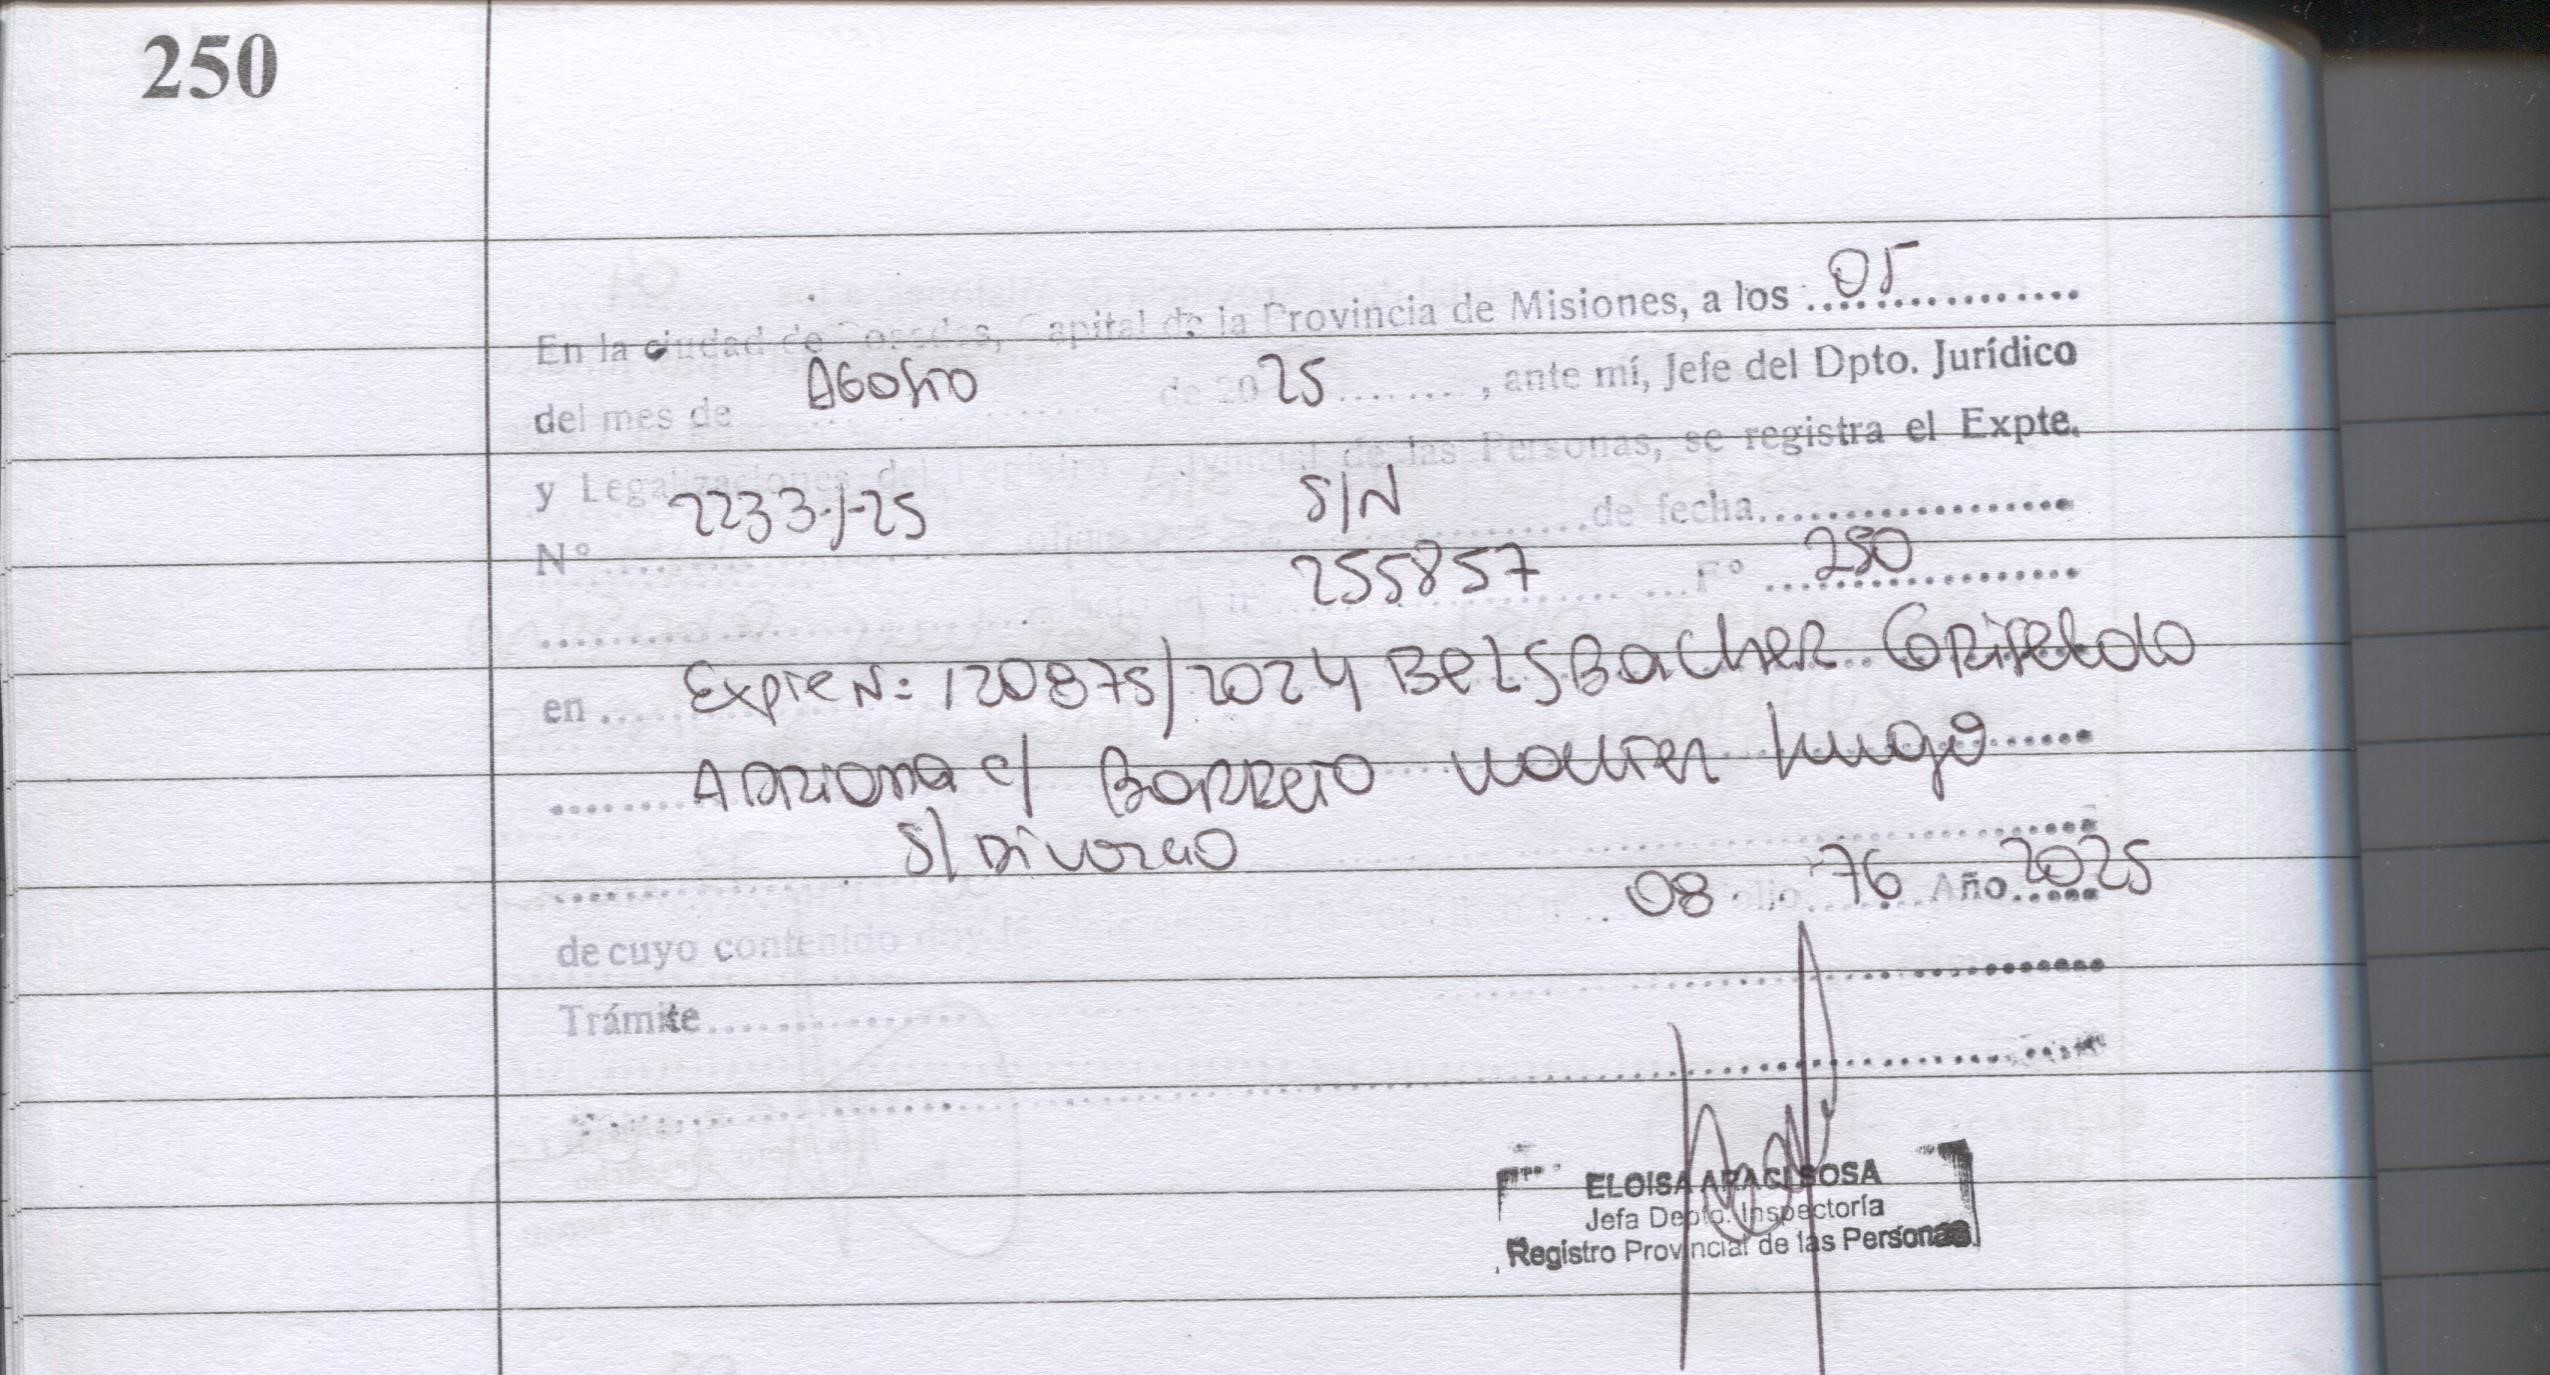 250
En la ciudad de Posadas, Capital de la Provincia de Misiones, a los 05
del mes de Agosto de 20 25, ante mí, Jefe del Dpto. Jurídico
y Legalizaciones del Registro Provincial de las Personas, se registra el Expte.
N° 2233-/-25 S/N de fecha
255857 F° 250
en Expte N: 120875/2024 Belsbacher Griselda
Adriana c/ Barreto Walter Hugo
S/ Divorcio
08 Folio 76 Año 2025
de cuyo contenido doy fe
Trámite
ELOISA ARACI SOSA
Jefa Depto. Inspectoría
Registro Provincial de las Personas